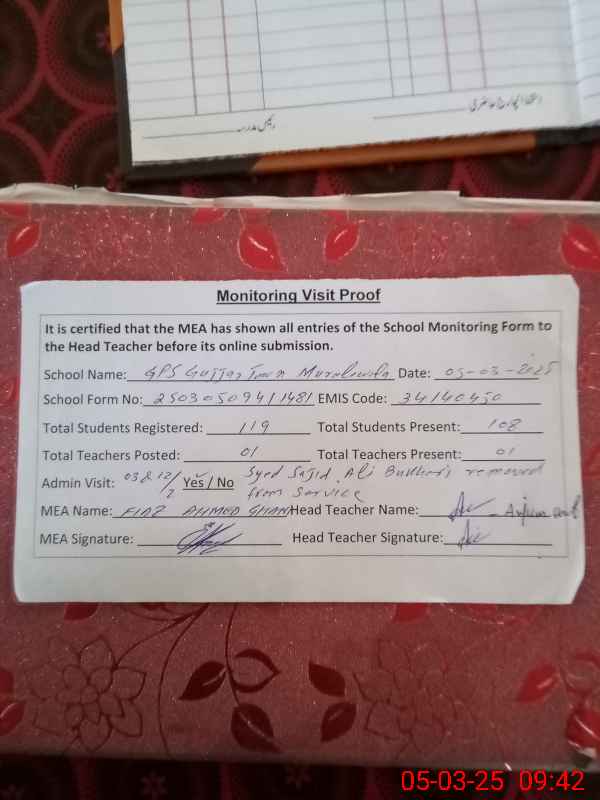 رئیس مدرسہ
Monitoring Visit Proof
It is certified that the MEA has shown all entries of the School Monitoring Form to
the Head Teacher before its online submission.
School Name: GPS Gujjar Town Date: 05-03-2025
School Form No: 250305094/1481 EMIS Code: 34140450
Total Students Registered: 119 Total Students Present: 108
Total Teachers Posted: 01 Total Teachers Present: 01
Admin Visit: Yes / No Syed Sajid Ali removed
from Service
MEA Name: FIAZ AHMED GHANI Head Teacher Name:
MEA Signature: Head Teacher Signature:
05-03-25 09:42